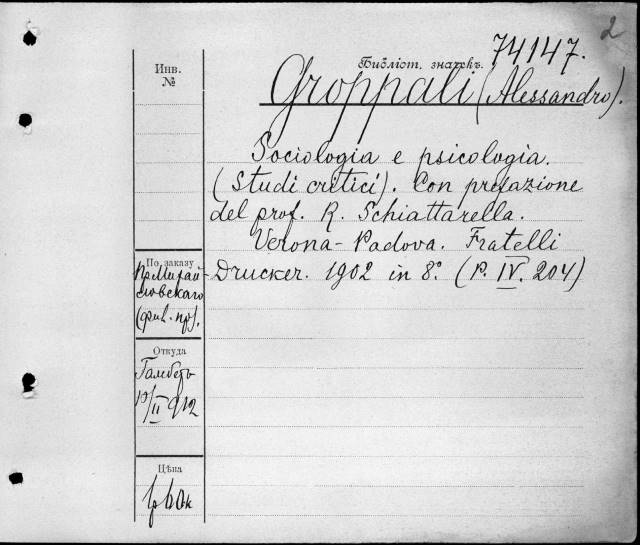 2
74147.
Инв.
№
Библіот. значекъ.
Groppali (Alessandro).
Sociologia e psicologia.
(Studi critici). Con prefazione
del prof. R. Schiattarella.
Verona-Padova. Fratelli
Drucker. 1902 in 8º. (P. IV. 204)
По заказу
Пр. Михай-
ловскаго
Откуда
10/II 912
Цѣна